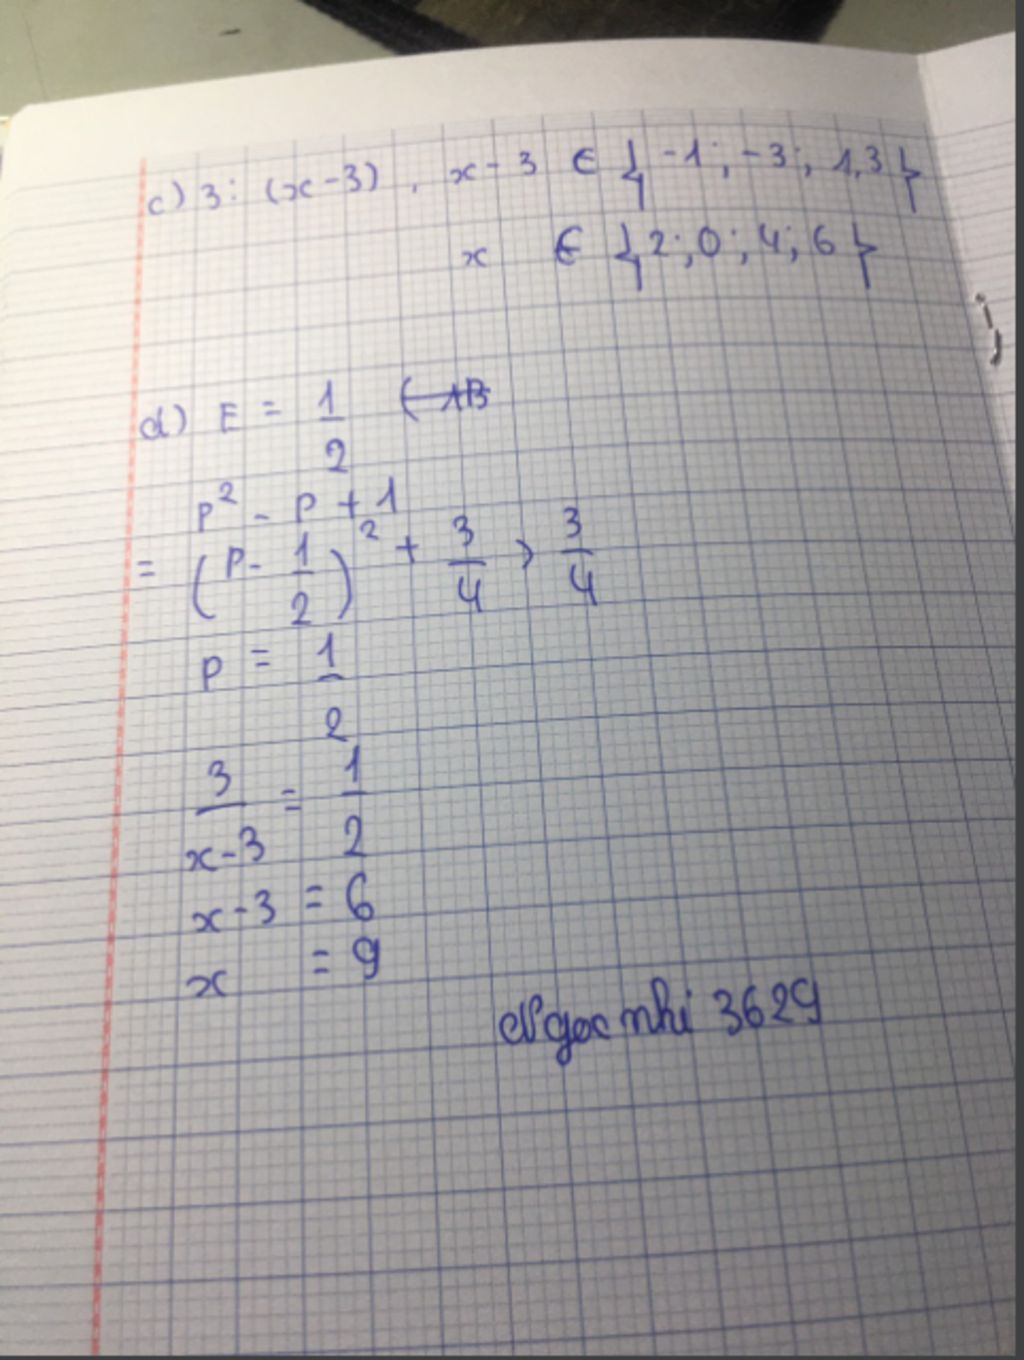 c) 3: (x-3), x-3 ∈ {-1; -3; 1, 3}
x ∈ {2; 0; 4; 6}
d) E = 1/2
P² - P + 1
= (P - 1/2)² + 3/4 > 3/4
P = 1/2
3/(x-3) = 1/2
x-3 = 6
x = 9
Ngoc nhi 3629